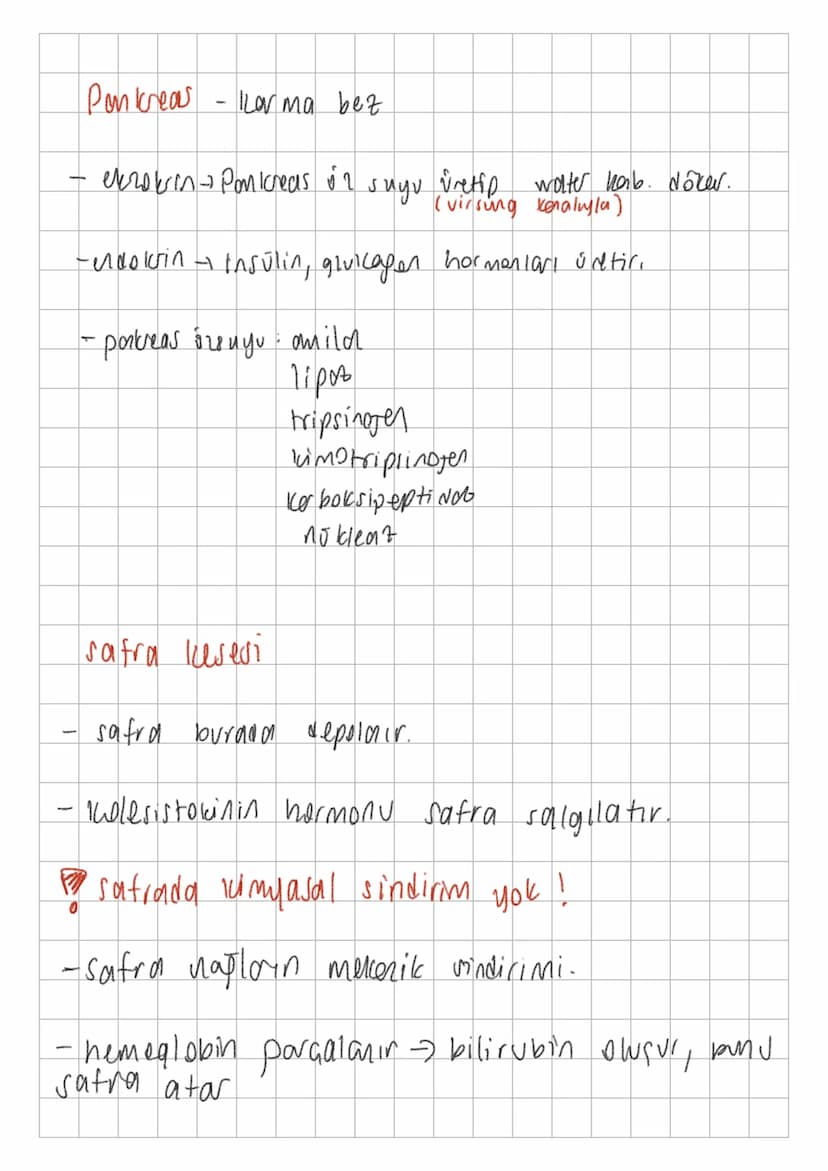 Pankreas - karma bez
- ekzokrin → Pankreas öz suyu üretip water kab. döker.
(virsung kanalıyla)
- endokrin → İnsülin, glukagon hormonları üretir.
- pankreas özsuyu : amilaz
lipaz
tripsinojen
kimotripsinojen
karboksipeptidaz
nükleaz
safra kesesi
- safra burada depolanır.
- kolesistokinin hormonu safra salgılatır.
! safrada kimyasal sindirim yok !
- safra yağların mekanik sindirimi.
- hemeglobin parçalanır → bilirubin oluşur, bunu
safra atar